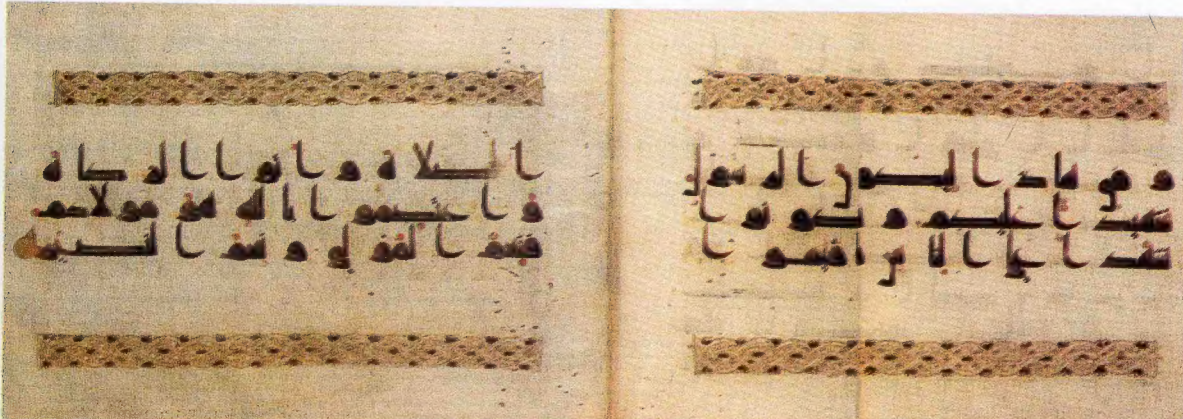 و في هذا ليكون الرسول
شهيدا عليكم و تكونوا
شهدا على الناس فاقيموا
الصلاة و اتوا الزكاة
و اعتصموا بالله هو موليكم
فنعم المولى و نعم النصير